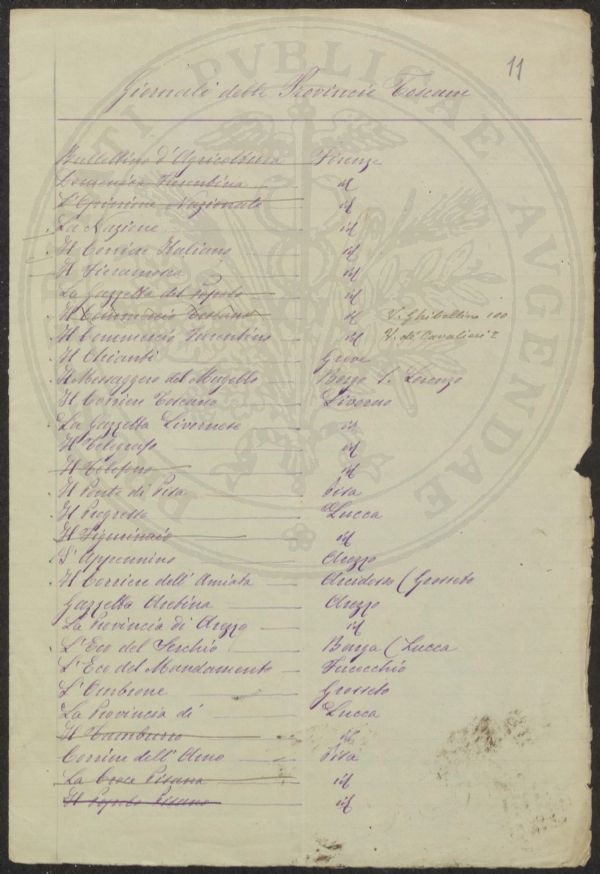 11
Giornali delle Provincie Toscane
Bullettino d'Agricoltura Firenze
Domenica Fiorentina id
L'Opinione Nazionale id
La Nazione id
Il Corriere Italiano id
Il Fieramosca id
La Gazzetta del Popolo id
Il Commercio Toscano id V. Ghibellina 100
Il Commercio Fiorentino id V. de' Cavalieri 2
Il Chianti Greve
Il Messaggero del Mugello Borgo S. Lorenzo
Il Corriere Toscano Livorno
La Gazzetta Livornese id
Il Telegrafo id
Il Telefono id
Il Ponte di Pisa Pisa
Il Progresso Lucca
Il Figurinaio id
L'Appennino Arezzo
Il Corriere dell'Amiata Arcidosso (Grosseto
Gazzetta Aretina Arezzo
La Provincia di Arezzo id
L'Eco del Serchio Barga (Lucca
L'Eco del Mandamento Fucecchio
L'Ombrone Grosseto
La Provincia di Lucca
Il id
Corriere dell'Arno Pisa
La Croce Pisana id
Il Popolo Pisano id
PUBLICAE AUGENDAE